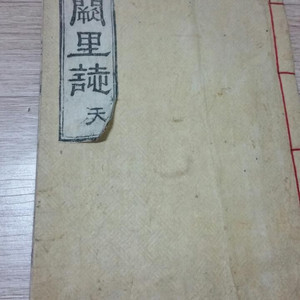 闕里誌
天